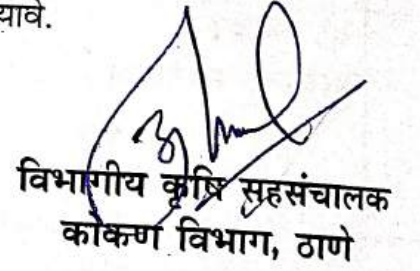 यावे.
विभागीय कृषि सहसंचालक
कोकण विभाग, ठाणे